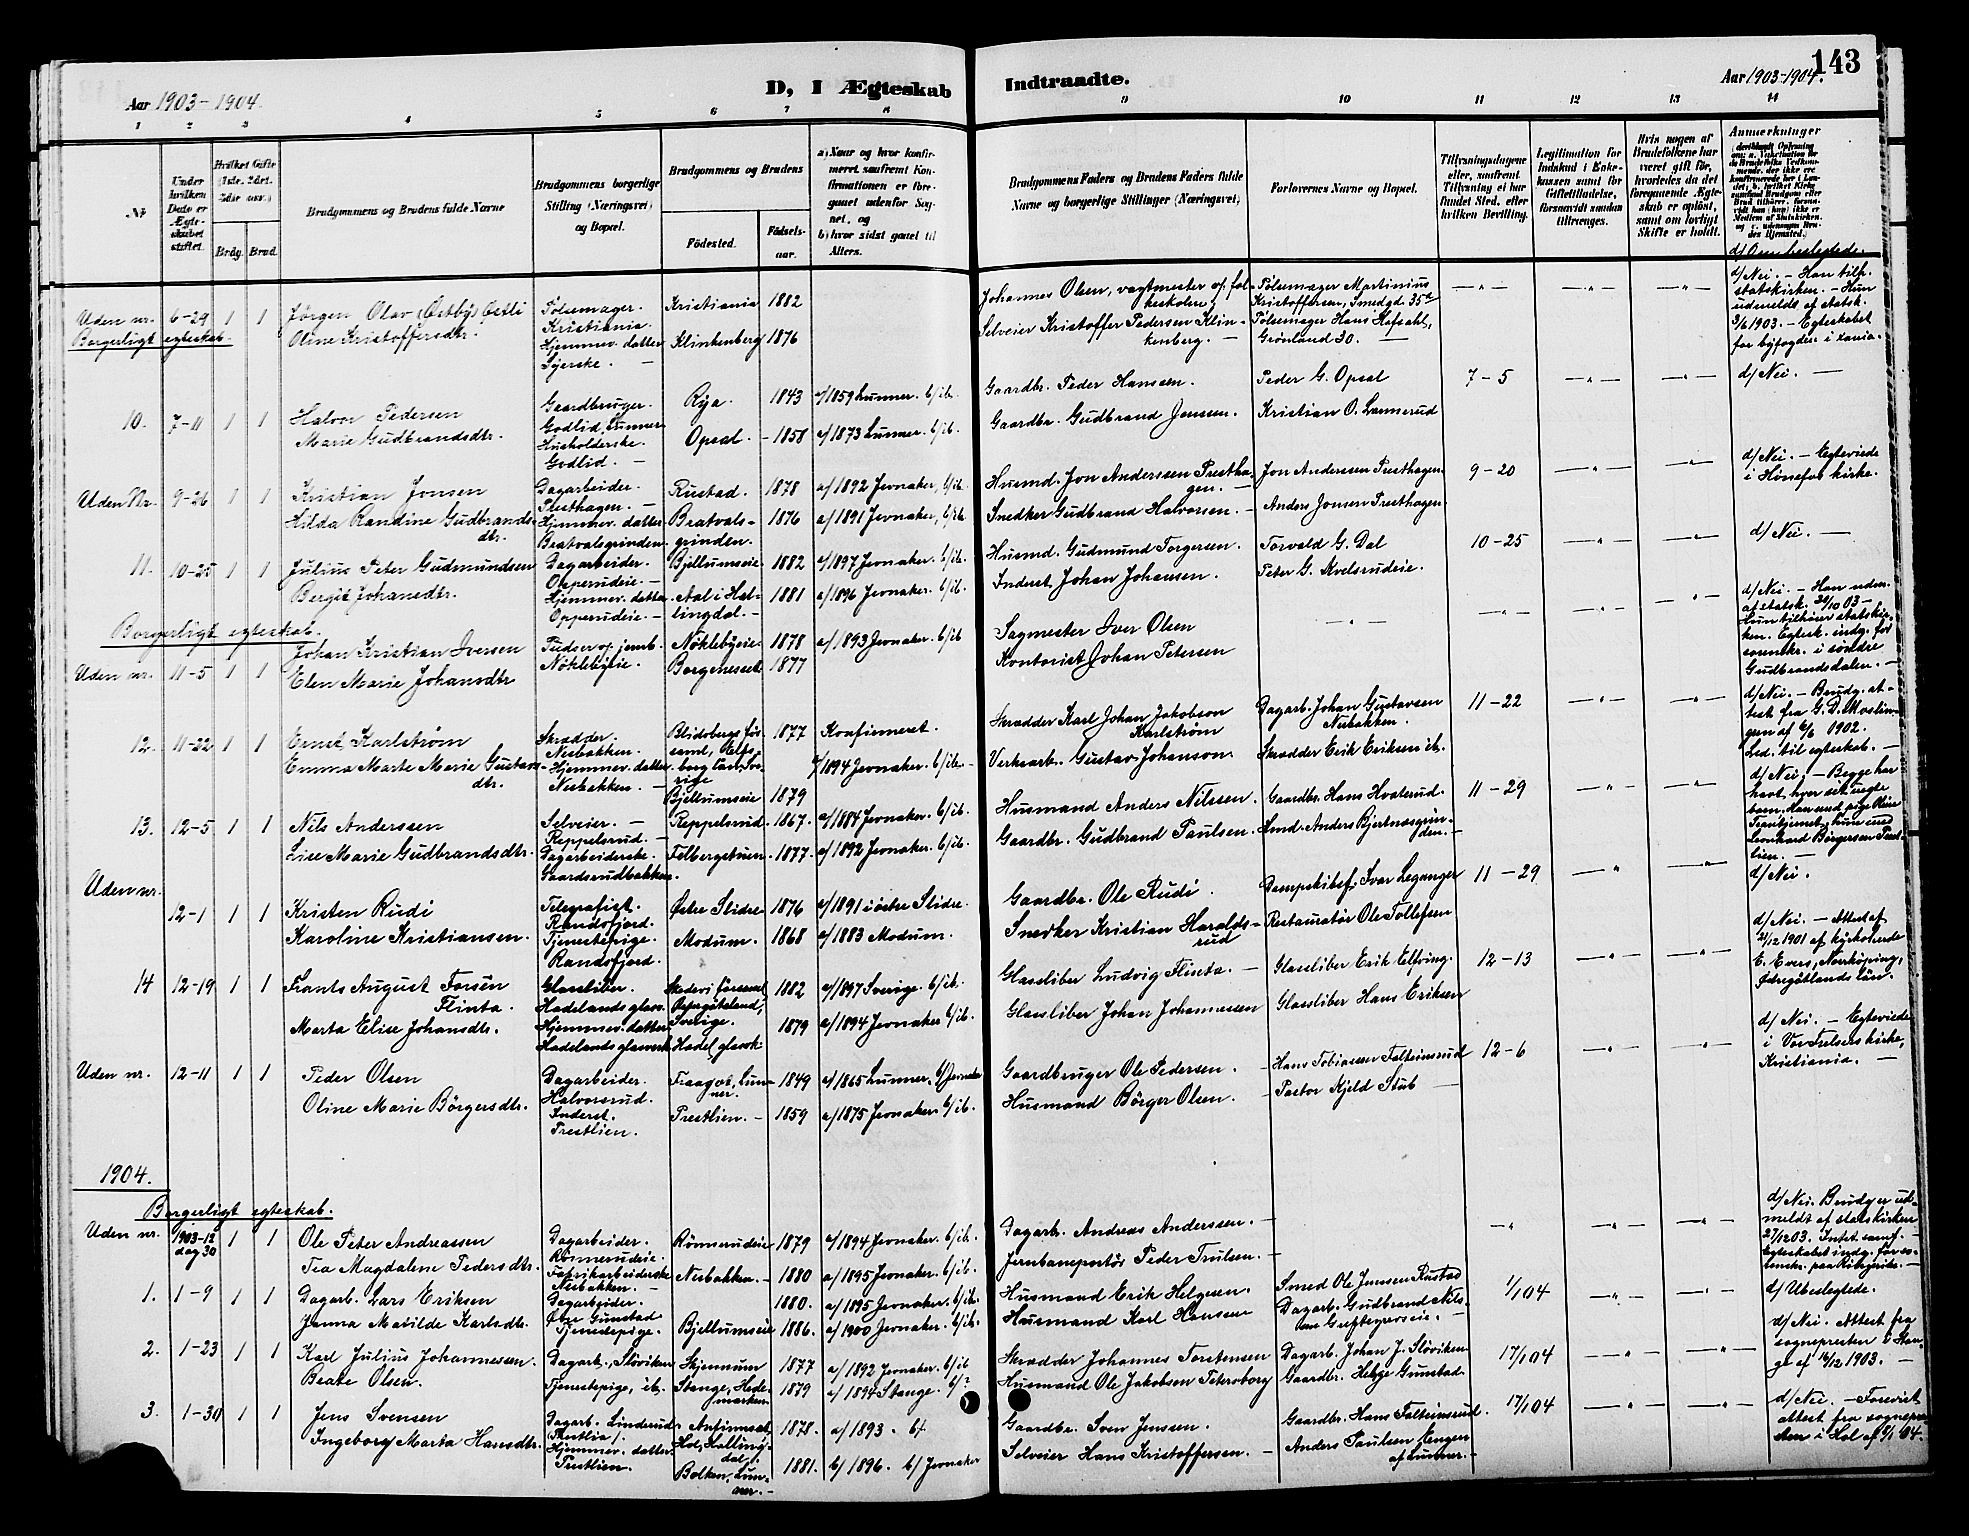 143
Aar 1903-1904.
D, I Ægteskab
Indtraadte.
Aar 1903-1904.
1 2 3 4 5 6 7 8
9 10 11 12 13 14
Nr.
Under hvilken Dato er Ægteskabet stiftet.
Hvilket Gifte (1ste, 2det, 3die osv.)
Brdg. Brud.
Brudgommens og Brudens fulde Navne
Brudgommens borgerlige Stilling (Næringsvei) og Bopæl.
Brudgommens og Brudens
Fødested.
Fødselsaar.
a) Naar og hvor konfirmeret, saafremt Konfirmationen er foregaaet udenfor Sognet, og
b) hvor sidst gaaet til Alters.
Brudgommens Faders og Brudens Faders fulde Navne og borgerlige Stillinger (Næringsvei)
Forlovernes Navne og Bopæl.
Tillysningsdagene eller, saafremt Tillysning ei har fundet Sted, efter hvilken Bevilling.
Legitimation for Indskud i Enkekassen samt for Giftetilladelse, forsaavidt saadan tiltrænges.
Hvis nogen af Brudefolkene har været gift før, hvorledes da det foregaaende Ægteskab er opløst, samt om lovligt Skifte er holdt.
Anmerkninger
d/ Om beslegtede.
Uden nr. 6-29 1 1 Jörgen Olav (Östby) Östli Pølsemager. Kristiania 1882
Kristiania.
Borgerligt egteskab.
Oline Kristoffersdtr. Hjemmev. datter Klinkenberg 1876
Syerske. —
Johannes Olsen, vagtmester
Pølsemager Martinius
Kristoffersen, Smedgd. 35
Selveier Kristoffer Pedersen Klinkenberg. —
Pølsemager Hans Hafsahl,
Grønland 30. —
d/ Nei. — Han tilh.
statskirken. — Hun
udmeldt af statsk.
3/6 1903. — Egteskabet
for byfogden i Xania.
10. 7-11 1 1 Halvor Pedersen Gaardbruger. Rya. 1843 a/1859 Lunner. b/ib.
Godlid, Lunner
Marie Gudbrandsdtr. Husholderske. Opsal. 1858 a/1873 Lunner. b/ib.
Godlid. —
Gaardbr. Peder Hansen. Peder G. Opsal 7-5 d/ Nei. —
Gaardbr. Gudbrand Jensen. Kristian O. Lannerud
Uden Nr. 9-26 1 1 Kristian Jonsen Dagarbeider. Rustad. 1878 a/1892 Jevnaker, b/ib.
Presthagen. —
Hilda Randine Gudbrandsdtr. Hjemmev. datter Bratvalsgrinden. 1876 a/1891 Jevnaker, b/ib.
Bratvalsgrinden.
Husmd. Jon Anderssen Presthagen. — Jon Anderssen Presthagen 9-20
Snedker Gudbrand Halvorsen. Anders Jonsen Presthagen
d/ Nei. — Egteviede
i Hönefos kirke.
11. 10-25 1 1 Julius Peter Gudmundsen Dagarbeider. Bjellumseie 1882 a/1897 Jevnaker. b/ib.
Opperudeie. —
Bergit Johansdtr. Hjemmev. datter. Aal i Hallingdal. — 1881 a/1896 Jevnaker. b/ib.
Opperudeie. —
Husmd. Gudmund Torgersen. Torvald G. Dal 10-25 d/ Nei. —
Inderst Johan Johansen. Peter G. Kvelsrudeie.
Borgerligt egteskab.
Uden nr. 11-5 1 1 Johan Kristian Iversen Nöklebyeie 1878 a/1893 Jevnaker. b/ib
Nöklebyeie.
Elen Marie Johansdtr 1877
Sagmester Iver Olsen
Kontorist Johan Petersen
d/ Nei. — Han udm.
af statsk. 24/10 03 —
Hun tilhører statskirken. Egtesk. indg. for
sorenskr. i søndre
Gudbrandsdalen. —
12. 11-22 1 1 Ernst Karlström Skrædder. 1877 Konfirmeret.
Nesbakken.
Emma Marte Marie Gustavsdtr. Hjemmev. datter Bjellumseie 1879 a/1894 Jevnaker. b/ib. —
Nesbakken. —
Skrædder Karl Johan Jakobson Karlström Dagarb. Johan Gustavsen Nesbakken. 11-22
Verksarb. Gustav Johanson Skrædder Erik Eriksen ib.
d/ Nei. — Brudg. attest fra
af 6/6 1902.
Led. til egteskab. —
13. 12-5 1 1 Nils Anderssen Selveier. — Reppelsrud. 1867. a/1884 Jevnaker. b/ib.
Reppelsrud. —
Lise Marie Gudbrandsdtr. Dagarbeiderske. 1877. a/1892 Jevnaker. b/ib.
Gaardsrudbakken.
Husmand Anders Nilssen. Gaardbr. Hans Hvalerud. 11-29
Gaardbr. Gudbrand Paulsen. Hmd. Anders Bjertnesgrinden.
d/ Nei. — Begge har
havt hver sit uegte
barn,
Uden nr. 12-1 1 1 Kristen Rudi Telegrafist. Östre Slidre 1876 a/1891 i östre Slidre.
Randsfjord.
Karoline Kristiansen. Tjenestepige. Modum. 1868 a/1883 Modum.
Randsfjord.
Gaardbr. Ole Rudi. Ivar Leganger 11-29 d/ Nei.
Snedker Kristian Haraldsrud Restauratør Ole Tollefsen
14 12-19 1 1 Frants August Forsén Flinta. Glassliber. 1882 a/1897 Sverige. b/ib.
Hadelands glasv.
Marta Elise Johansdtr. Hjemmev. datter 1879 a/1894 Jevnaker b/ib.
Hadelands glasverk Hadel. glasv.
Glassliber Ludvig Flinta. — Glassliber Erik Elfving. 12-13
Glassliber Johan Johannessen Glassliber Hans Eriksen
d/ Nei. — Attest af
2/12 1901 af kyrkoherde
E. Evers, Norrköping,
Östergötlands Län.
Uden nr. 12-11 1 1 Peder Olsen Dagarbeider. 1849 a/1865 Lunner. b/Jevnaker
Halvorsrud.
Oline Marie Börgersdtr. Inderst. Prestlien. — 1859 a/1875 Jevnaker. b/ib.
Prestlien.
Gaardbruger Ole Pedersen. Hans Tobiasen Falteinsrud 12-6
Husmand Börger Olsen. — Pastor Kjeld Stub —
d/ Nei. — Egteviede
i Vor Frelsers kirke,
Kristiania. —
1904.
Borgerligt egteskab.
Uden nr. 1903-12 dag 30 1 1 Ole Peter Andreassen Dagarbeider. Rönnerudeie 1879 a/1894 Jevnaker. b/ib.
Rönnerudeie.
Tea Magdalene Pedersdtr. Fabrikarbeiderske Nesbakken. — 1880 a/1895 Jevnaker. b/ib.
Nesbakken. —
Dagarb. Andreas Anderssen. —
Jernbaneportör Peder Trulsen. —
d/ Nei. Brudg. er udmeldt af statskirken
27/12 03. Intet samf. —
Egteskabet indg. for sorenskr. paa Ringerike. —
1. 1-9 1 1 Dagarb. Lars Eriksen Dagarbeider. 1880. a/1895 Jevnaker. b/ib.
Övre Gunstad
Janna Matilde Karlsdtr. Tjenestepige. Bjellumseie 1886. a/1900 Jevnaker. b/ib.
Husmand Erik Helgesen. Smed Ole Jenssen Rustad 1/1 04 d/ Ubeslegtede.
Husmand Karl Hansen Dagarb. Gudbrand Nilssen
2. 1-23 1 1 Karl Julius Johannessen. Dagarb., Slöviken Skjennum 1877 a/1892 Jevnaker. b/ib
Beate Olsen. Tjenestepige, ib. Stange, Hedemarken 1879 a/1894 Stange. b/?
Skrædder Johannes Torstensen Dagarb. Johan J. Slöviken 17/1 04
Husmand Ole Jakobsen Petersborg Gaardbr. Helge Gunstad
d/ Nei. Attest fra
sognepresten i Stange af 16/12 1903. —
3. 1-30 1 1 Jens Svensen Dagarb. Linderud 1878. a/1893 b/
Prestlia/. Hol, Hallingdal.
Ingeborg Marta Hansdtr. Hjemmev. datter. 1881. b/1896. b/Jevnaker
Prestlien. Lunner. —
Gaardbr. Sven Jenssen. Gaardbr. Hans Falteinsrud 17/1 04
Selveier Hans Kristoffersen. — Anders Paulsen Engen
af Lunner.
d/ Nei. —
attest fra sognepresten i Hol af 6/1 04.